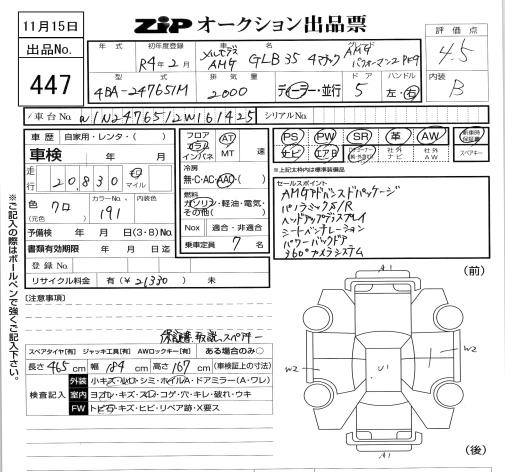 11月15日
ZiP オークション出品票
出品No.
447
年式 初年度登録 車名 グレード
R4年2月 メルセデスAMG GLB35 4マチック AMGパフォーマンスPKG
型式 排気量 ドア ハンドル
4BA-247651M 2000 ディーラー・並行 5 左・右
評価点
4.5
内装
B
車台No. W1N2476512W161425 シリアルNo.
車歴 自家用・レンタ・( )
車検 年 月
走行 20,830 キロ マイル
色 クロ (元色) カラーNo. 191 内装色
予備検 年 月 日(3・8)No.
書類有効期限 年 月 日迄
登録No.
リサイクル料金 有(¥21330) 未
フロア コラム インパネ AT MT 速
冷房 無・C・AC・AAC・( )
燃料 ガソリン・軽油・電気・その他( )
Nox 適合・非適合
乗車定員 7 名
PS PW SR 革 AW 新車時保証書
ナビ エアB 社外ナビ 社外AW スペアキー
※上記太枠内は標準装備品
セールスポイント
AMGアドバンスドパッケージ
パノラミックS/R
ヘッドアップディスプレイ
シートベンチレーション
パワーバックドア
360°カメラシステム
[注意事項]
保証書、取説、スペアキー
スペアタイヤ[有] ジャッキ工具[有] AWロックキー[有] ある場合のみ○
長さ 465 cm 幅 184 cm 高さ 167 cm (車検証上の寸法)
検査記入
外装 小キズ・凹・シミ・ホイルA・ドアミラー(A・ワレ)
室内 ヨゴレ・キズ・スレ・コゲ・穴・キレ・破れ・ウキ
FW トビ石・キズ・ヒビ・リペア跡・X要ス
※ご記入の際はボールペンで強くご記入下さい。
(前)
A1
W2
W2
U1
A1
(後)